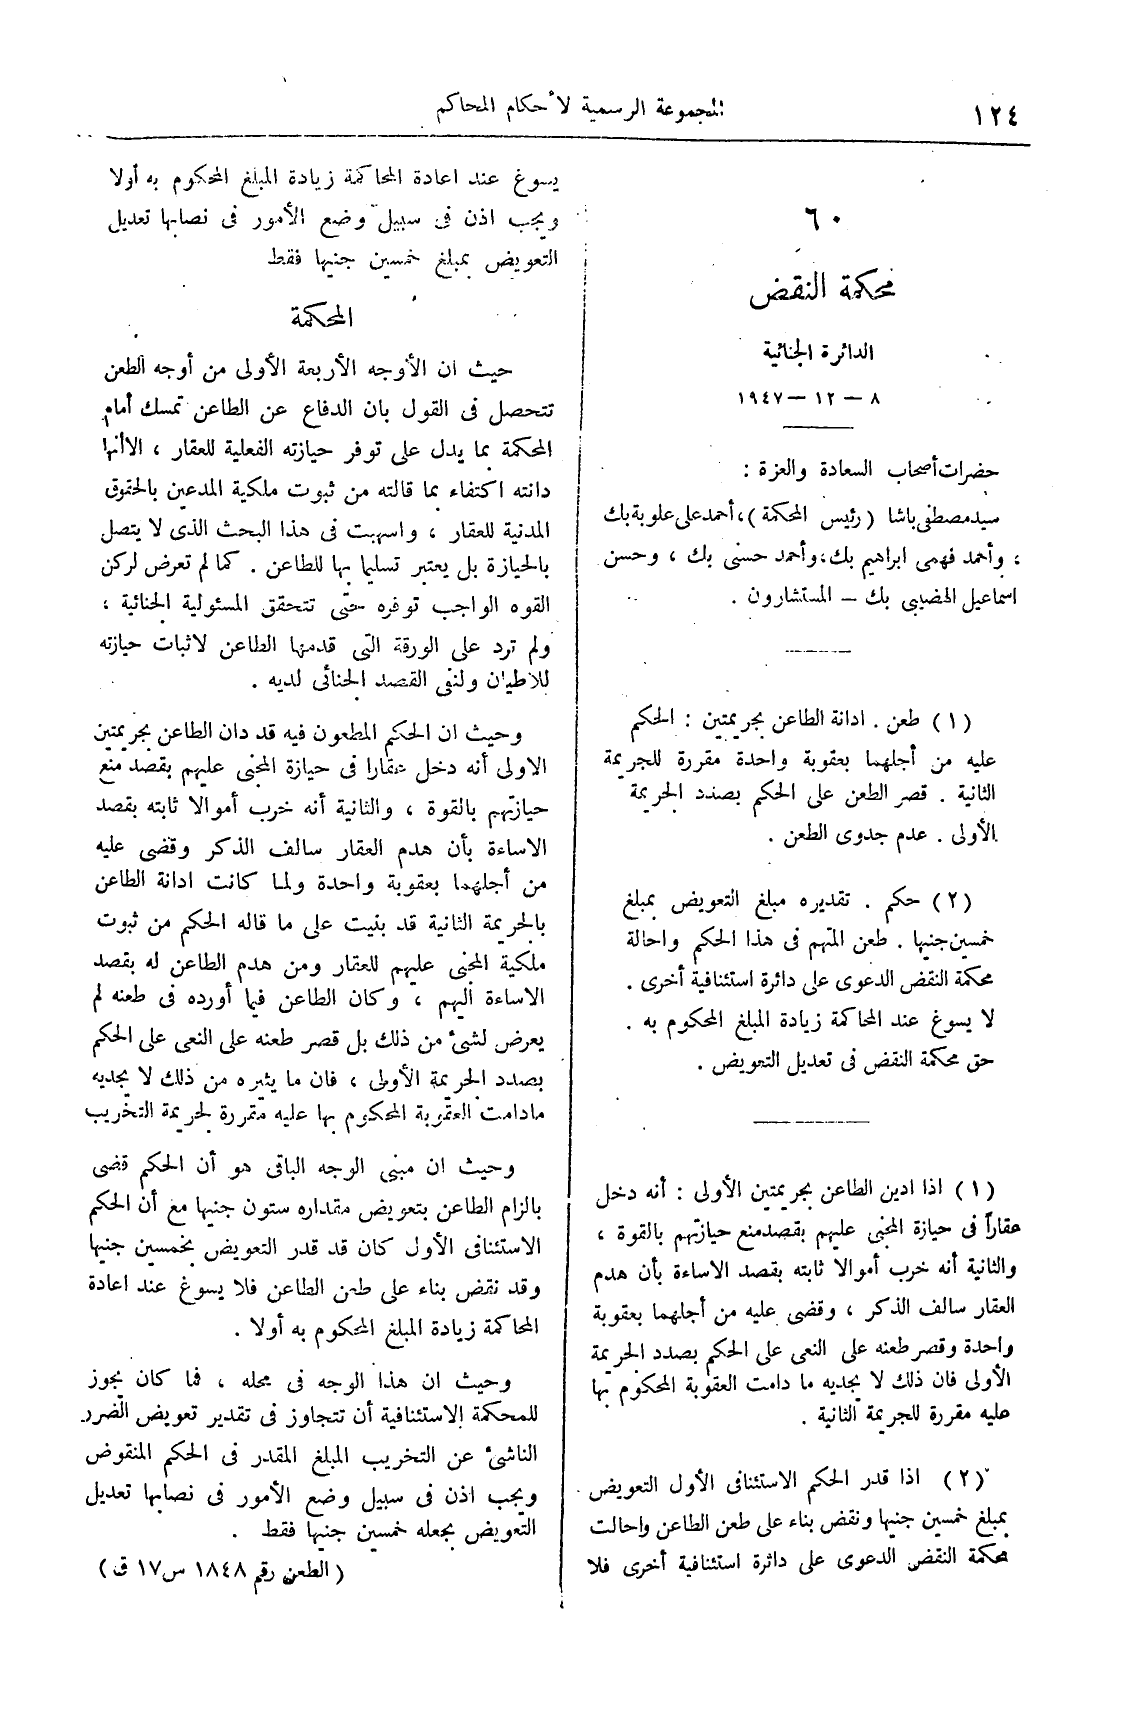 ١٢٤
المجموعة الرسمية لأحكام المحاكم
٦٠
محكمة النقض
الدائرة الجنائية
٨ – ١٢ – ١٩٤٧
حضرات أصحاب السعادة والعزة :
سيد مصطفى باشا ( رئيس المحكمة ) ، أحمد على علوبة بك
، وأحمد فهمى ابراهيم بك ، وأحمد حسنى بك ، وحسن
اسماعيل الهضيبى بك – المستشارون .
( ١ ) طعن . ادانة الطاعن بجريمتين : الحكم
عليه من أجلهما بعقوبة واحدة مقررة للجريمة
الثانية . قصر الطعن على الحكم بصدد الجريمة
الأولى . عدم جدوى الطعن .
( ٢ ) حكم . تقديره مبلغ التعويض بمبلغ
خمسين جنيها . طعن المتهم فى هذا الحكم واحالة
محكمة النقض الدعوى على دائرة استئنافية أخرى .
لا يسوغ عند المحاكمة زيادة المبلغ المحكوم به .
حق محكمة النقض فى تعديل التعويض .
( ١ ) اذا ادين الطاعن بجريمتين الأولى : أنه دخل
عقاراً فى حيازة المجنى عليهم بقصد منع حيازتهم بالقوة ،
والثانية أنه خرب أموالا ثابته بقصد الاساءة بأن هدم
العقار سالف الذكر ، وقضى عليه من أجلهما بعقوبة
واحدة وقصر طعنه على النعى على الحكم بصدد الجريمة
الأولى فان ذلك لا يجديه ما دامت العقوبة المحكوم بها
عليه مقررة للجريمة الثانية .
( ٢ ) اذا قدر الحكم الاستئنافى الأول التعويض
بمبلغ خمسين جنيها ونقض بناء على طعن الطاعن واحالت
محكمة النقض الدعوى على دائرة استئنافية أخرى فلا
يسوغ عند اعادة المحاكمة زيادة المبلغ المحكوم به أولا
ويجب اذن فى سبيل وضع الأمور فى نصابها تعديل
التعويض بمبلغ خمسين جنيها فقط
المحكمة
حيث ان الأوجه الأربعة الأولى من أوجه الطعن
تتحصل فى القول بان الدفاع عن الطاعن تمسك أمام
المحكمة بما يدل على توفر حيازته الفعلية للعقار ، الا أنها
دانته اكتفاء بما قالته من ثبوت ملكية المدعين بالحقوق
المدنية للعقار ، واسهبت فى هذا البحث الذى لا يتصل
بالحيازة بل يعتبر تسليما بها للطاعن . كما لم تعرض لركن
القوه الواجب توفره حتى تتحقق المسئولية الجنائية ،
ولم ترد على الورقة التى قدمها الطاعن لاثبات حيازته
للاطيان ولنفى القصد الجنائى لديه .
وحيث ان الحكم المطعون فيه قد دان الطاعن بجريمتين
الاولى أنه دخل عقارا فى حيازة المجنى عليهم بقصد منع
حيازتهم بالقوة ، والثانية أنه خرب أموالا ثابته بقصد
الاساءة بأن هدم العقار سالف الذكر وقضى عليه
من أجلهما بعقوبة واحدة ولما كانت ادانة الطاعن
بالجريمة الثانية قد بنيت على ما قاله الحكم من ثبوت
ملكية المجنى عليهم للعقار ومن هدم الطاعن له بقصد
الاساءة اليهم ، وكان الطاعن فيما أورده فى طعنه لم
يعرض لشئ من ذلك بل قصر طعنه على النعى على الحكم
بصدد الجريمة الأولى ، فان ما يثيره من ذلك لا يجديه
مادامت العقوبة المحكوم بها عليه مقررة لجريمة التخريب
وحيث ان مبنى الوجه الباقى هو أن الحكم قضى
بالزام الطاعن بتعويض مقداره ستون جنيها مع أن الحكم
الاستئنافى الأول كان قد قدر التعويض بخمسين جنيها
وقد نقض بناء على طعن الطاعن فلا يسوغ عند اعادة
المحاكمة زيادة المبلغ المحكوم به أولا .
وحيث ان هذا الوجه فى محله ، فما كان يجوز
للمحكمة الاستئنافية أن تتجاوز فى تقدير تعويض الضرر
الناشئ عن التخريب المبلغ المقدر فى الحكم المنقوض
ويجب اذن فى سبيل وضع الأمور فى نصابها تعديل
التعويض بجعله خمسين جنيها فقط .
( الطعن رقم ١٨٤٨ س ١٧ ق )